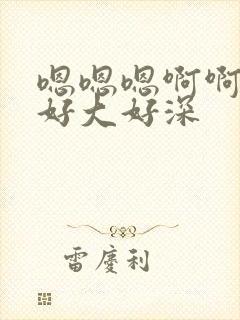 嗯嗯嗯啊啊
好大好深
雷慶利